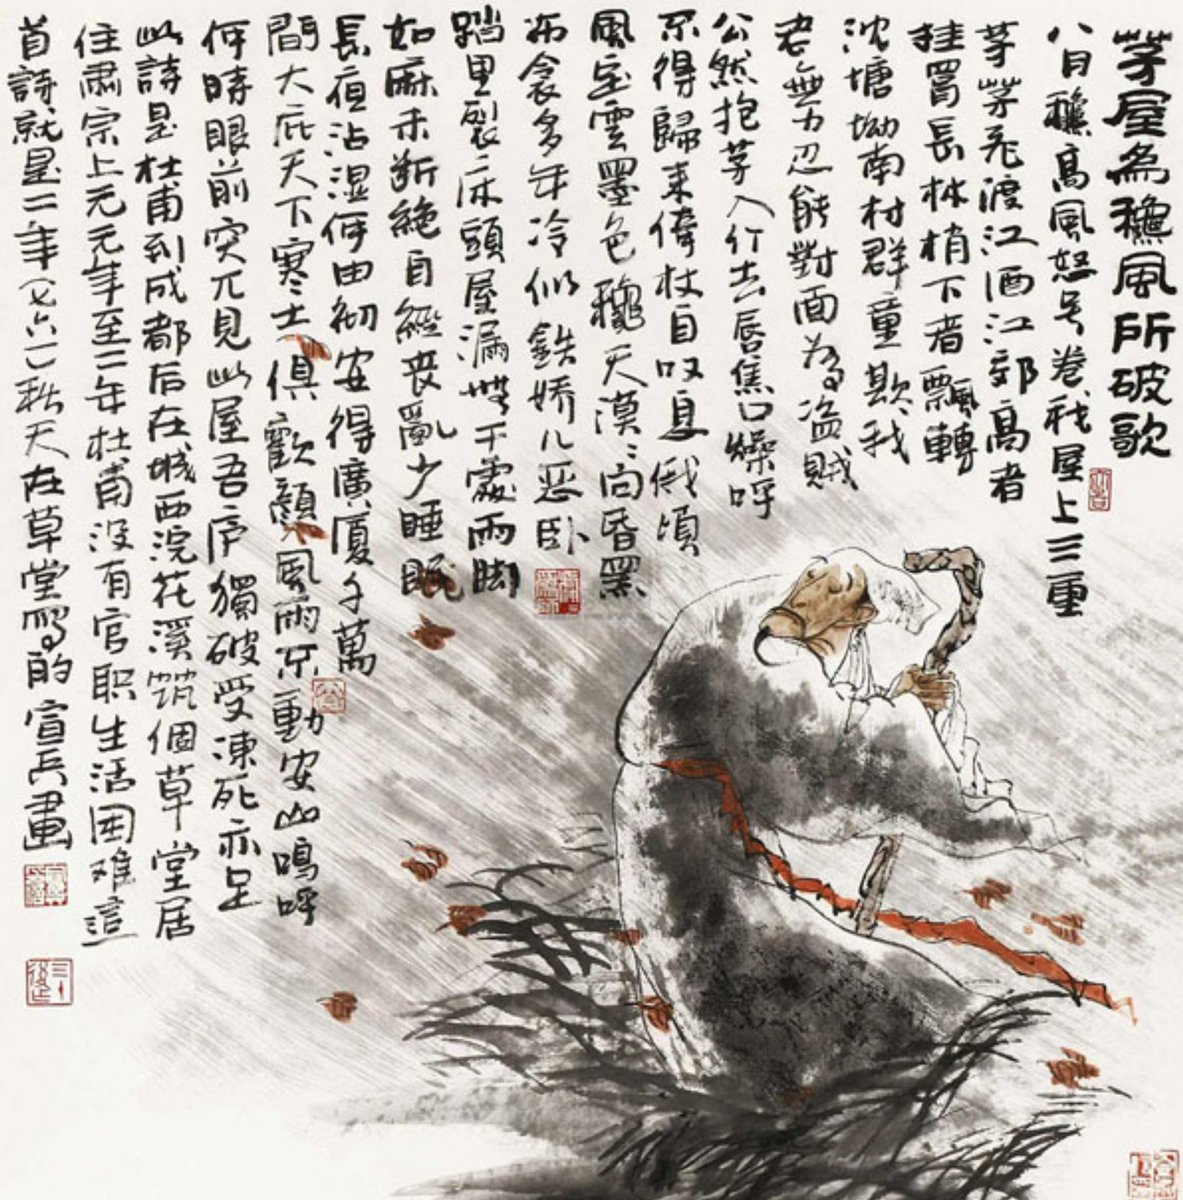 茅屋為穐風所破歌
八月穐高風怒号卷我屋上三重
茅茅飛渡江洒江郊高者
挂罥長林梢下者飄轉
沈塘坳南村群童欺我
老無力忍能對面為盗賊
公然抱茅入竹去唇焦口燥呼
不得歸来倚杖自叹息俄頃
風定雲墨色穐天漠〻向昏黑
布衾多年冷似鉄娇儿恶卧
踏里裂床頭屋漏無干處雨脚
如麻未断絶自經丧亂少睡眠
長夜沾湿何由彻安得廣厦千萬
間大庇天下寒士俱歡顔風雨不動安山嗚呼
何時眼前突兀見此屋吾庐獨破受凍死亦足
此詩是杜甫到成都后在城西浣花溪筑個草堂居
住肃宗上元元年至二年杜甫没有官职生活困难這
首詩就是二年(七六一)秋天在草堂寫的宣兵畫